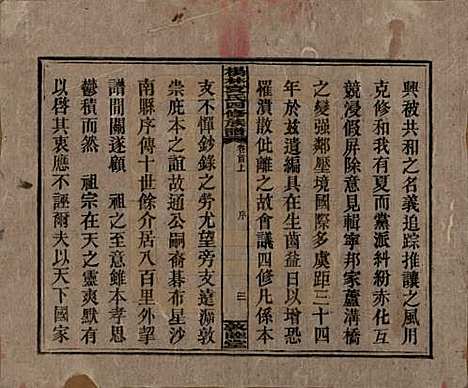 興被共和之名義追踪推讓之風用
克修和我有夏而黨派糾紛赤化互
競浸假屏除意見輯寧邦家蘆溝橋
之變强鄰壓境國際多虞距三十四
年於兹遺編具在生齒益日以增恐
罹潰散仳離之故會議四修凡係本
氏四修族譜
卷首上
序
三
支不憚鈔錄之勞尤望旁支遠溯敦
崇庇本之誼故通公嗣裔碁布星沙
南縣序傳十世餘介居八百里外挈
譜閒關遂願 祖之至意錐本孝思
鬱積而然 祖宗在天之靈爽憑之
以啓其衷應不誣爾夫以天下國家